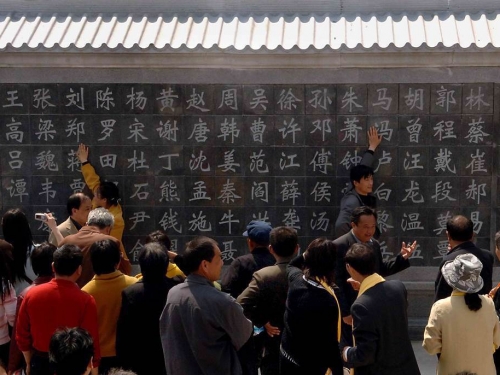 王 张 刘 陈 杨 黄 赵 周 吴 徐 孙 朱 马 胡 郭 林
高 梁 郑 罗 宋 谢 唐 韩 曹 许 邓 萧 冯 曾 程 蔡
吕 魏 蒋 田 杜 丁 沈 姜 范 江 傅 钟 卢 汪 戴 崔
谭 韦 石 熊 孟 秦 阎 薛 侯 白 龙 段 郝
尹 钱 施 牛 龚 汤
聂